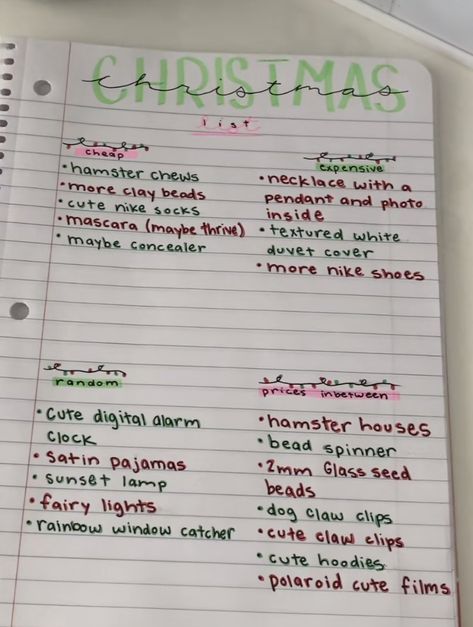 CHRISTMAS
christmas
list
cheap
• hamster chews
• more clay beads
• cute nike socks
• mascara (maybe thrive)
• maybe concealer
expensive
• necklace with a
pendant and photo
inside
• textured white
duvet cover
• more nike shoes
random
• cute digital alarm
clock
• satin pajamas
• sunset lamp
• fairy lights
• rainbow window catcher
prices inbetween
• hamster houses
• bead spinner
• 2mm Glass seed
beads
• dog claw clips
• cute claw clips
• cute hoodies
• polaroid cute films